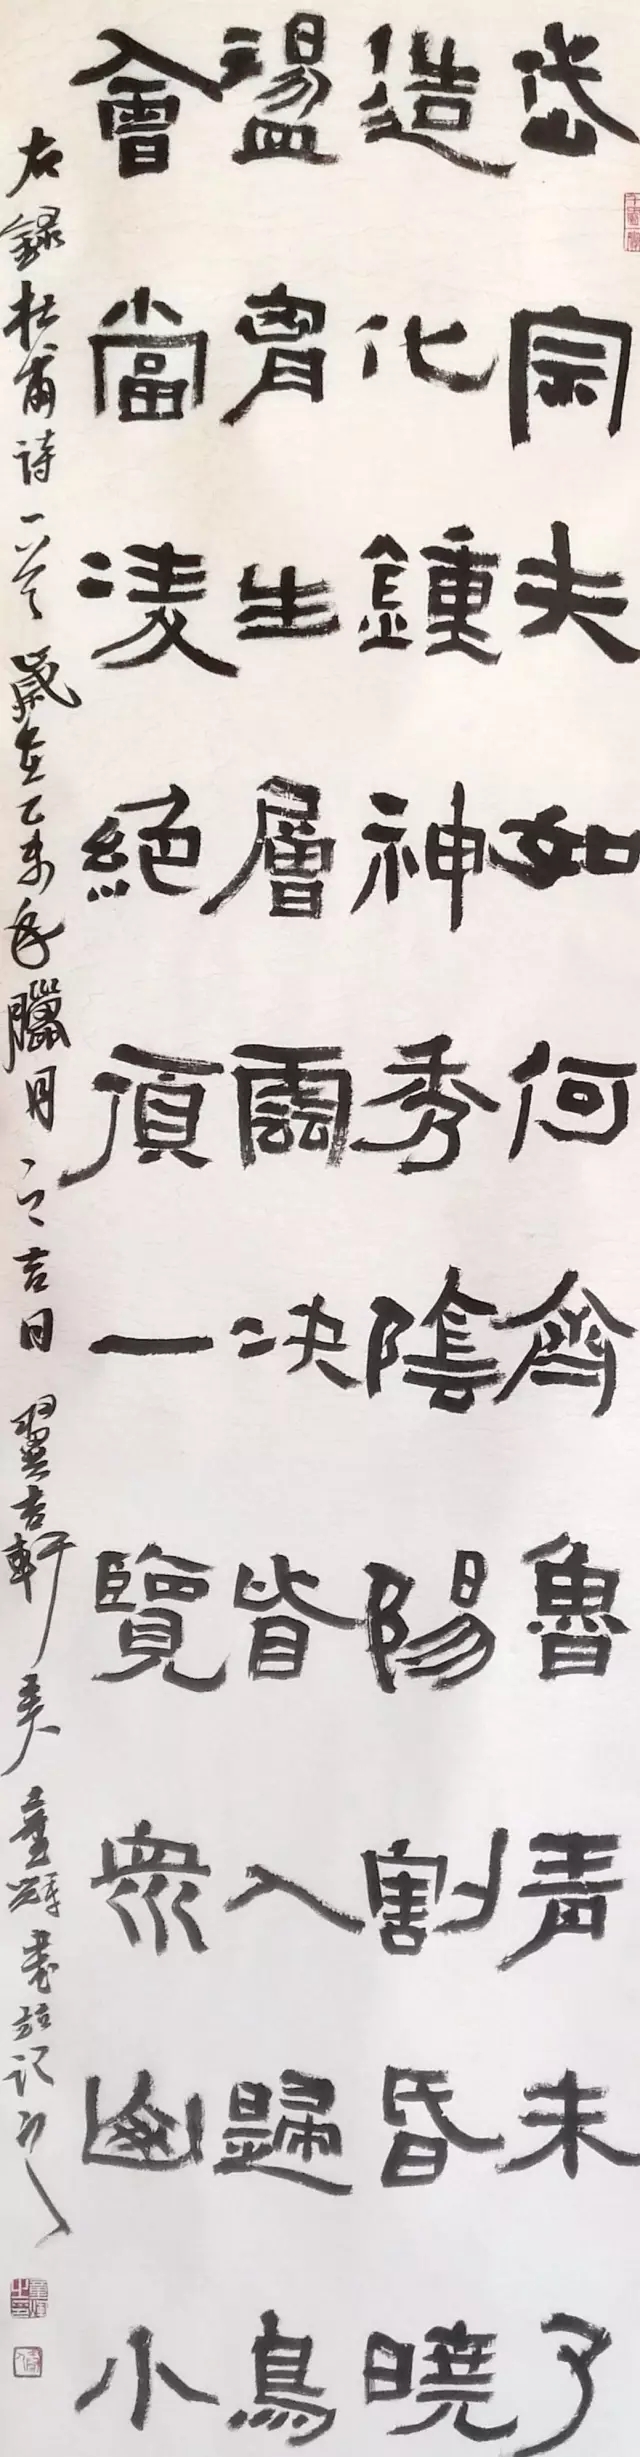 岱宗夫如何齊魯青未了
造化鍾神秀陰陽割昏曉
盪胷生層雲决眥入歸鳥
會當凌絕頂一覽衆山小
右錄杜甫詩一首歲在乙未年臘月之吉日翼吉軒